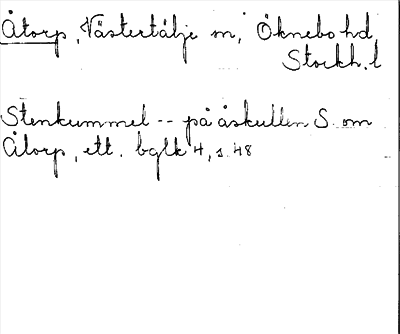 Åtorp, Västertälje sn, Öknebo hd,
Stockh. l
Stenkummel -- på åskullen S. om
Åtorp, ett. bglk 4, s. 48